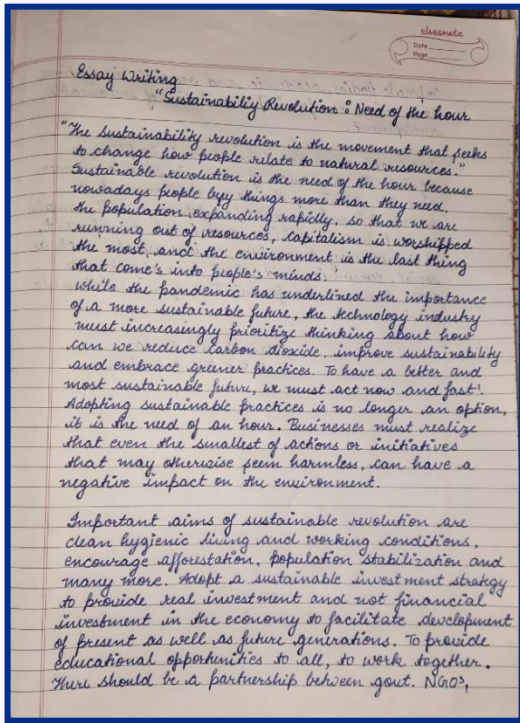 classmate
Date
Page
Essay Writing
"Sustainabiliy Revolution : Need of the hour
"The sustainability revolution is the movement that seeks
to change how people relate to natural resources."
Sustainable revolution is the need of the hour because
nowadays people buy things more than they need.
the population expanding rapidly, so that we are
running out of resources, Capitalism is worshipped
the most, and the environment is the last thing
that come's into people's minds.
while the pandemic has underlined the importance
of a more sustainable future, the technology industry
must increasingly prioritize thinking about how
can we reduce carbon dioxide, improve sustainability
and embrace greener practices. To have a better and
most sustainable future, we must act now and fast!
Adopting sustainable practices is no longer an option,
it is the need of an hour. Businesses must realize
that even the smallest of actions or initiatives
that may otherwise seem harmless, can have a
negative impact on the environment.
Important aims of sustainable revolution are
clean hygienic living and working conditions,
encourage afforestation, population stabilization and
many more. Adopt a sustainable investment strategy
to provide real investment and not financial
investment in the economy to facilitate development
of present as well as future generations. To provide
educational opportunities to all, to work together.
There should be a partnership between govt. NGOs,